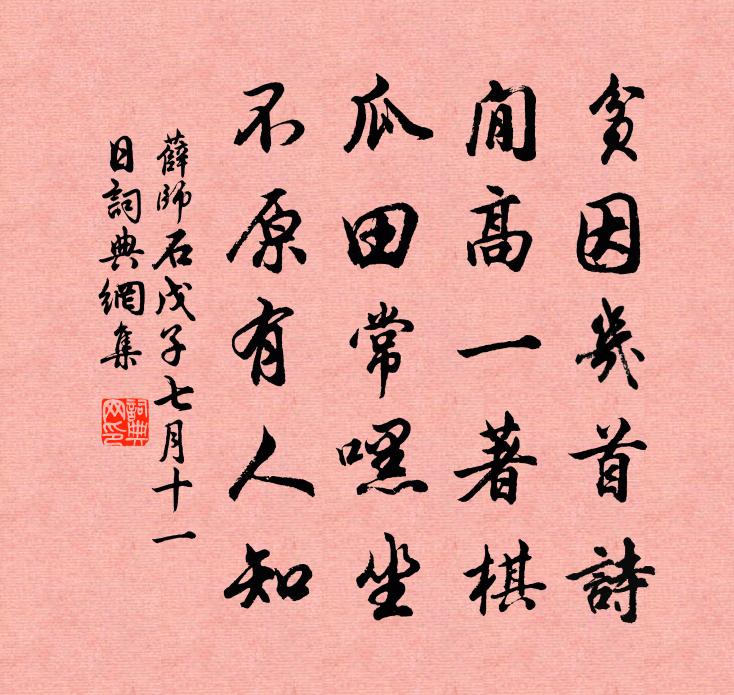 貧因幾首詩
閒高一著棋
瓜田常嘿坐
不原有人知
薛師石戊子七月十一
日詞典網集
詞典网印